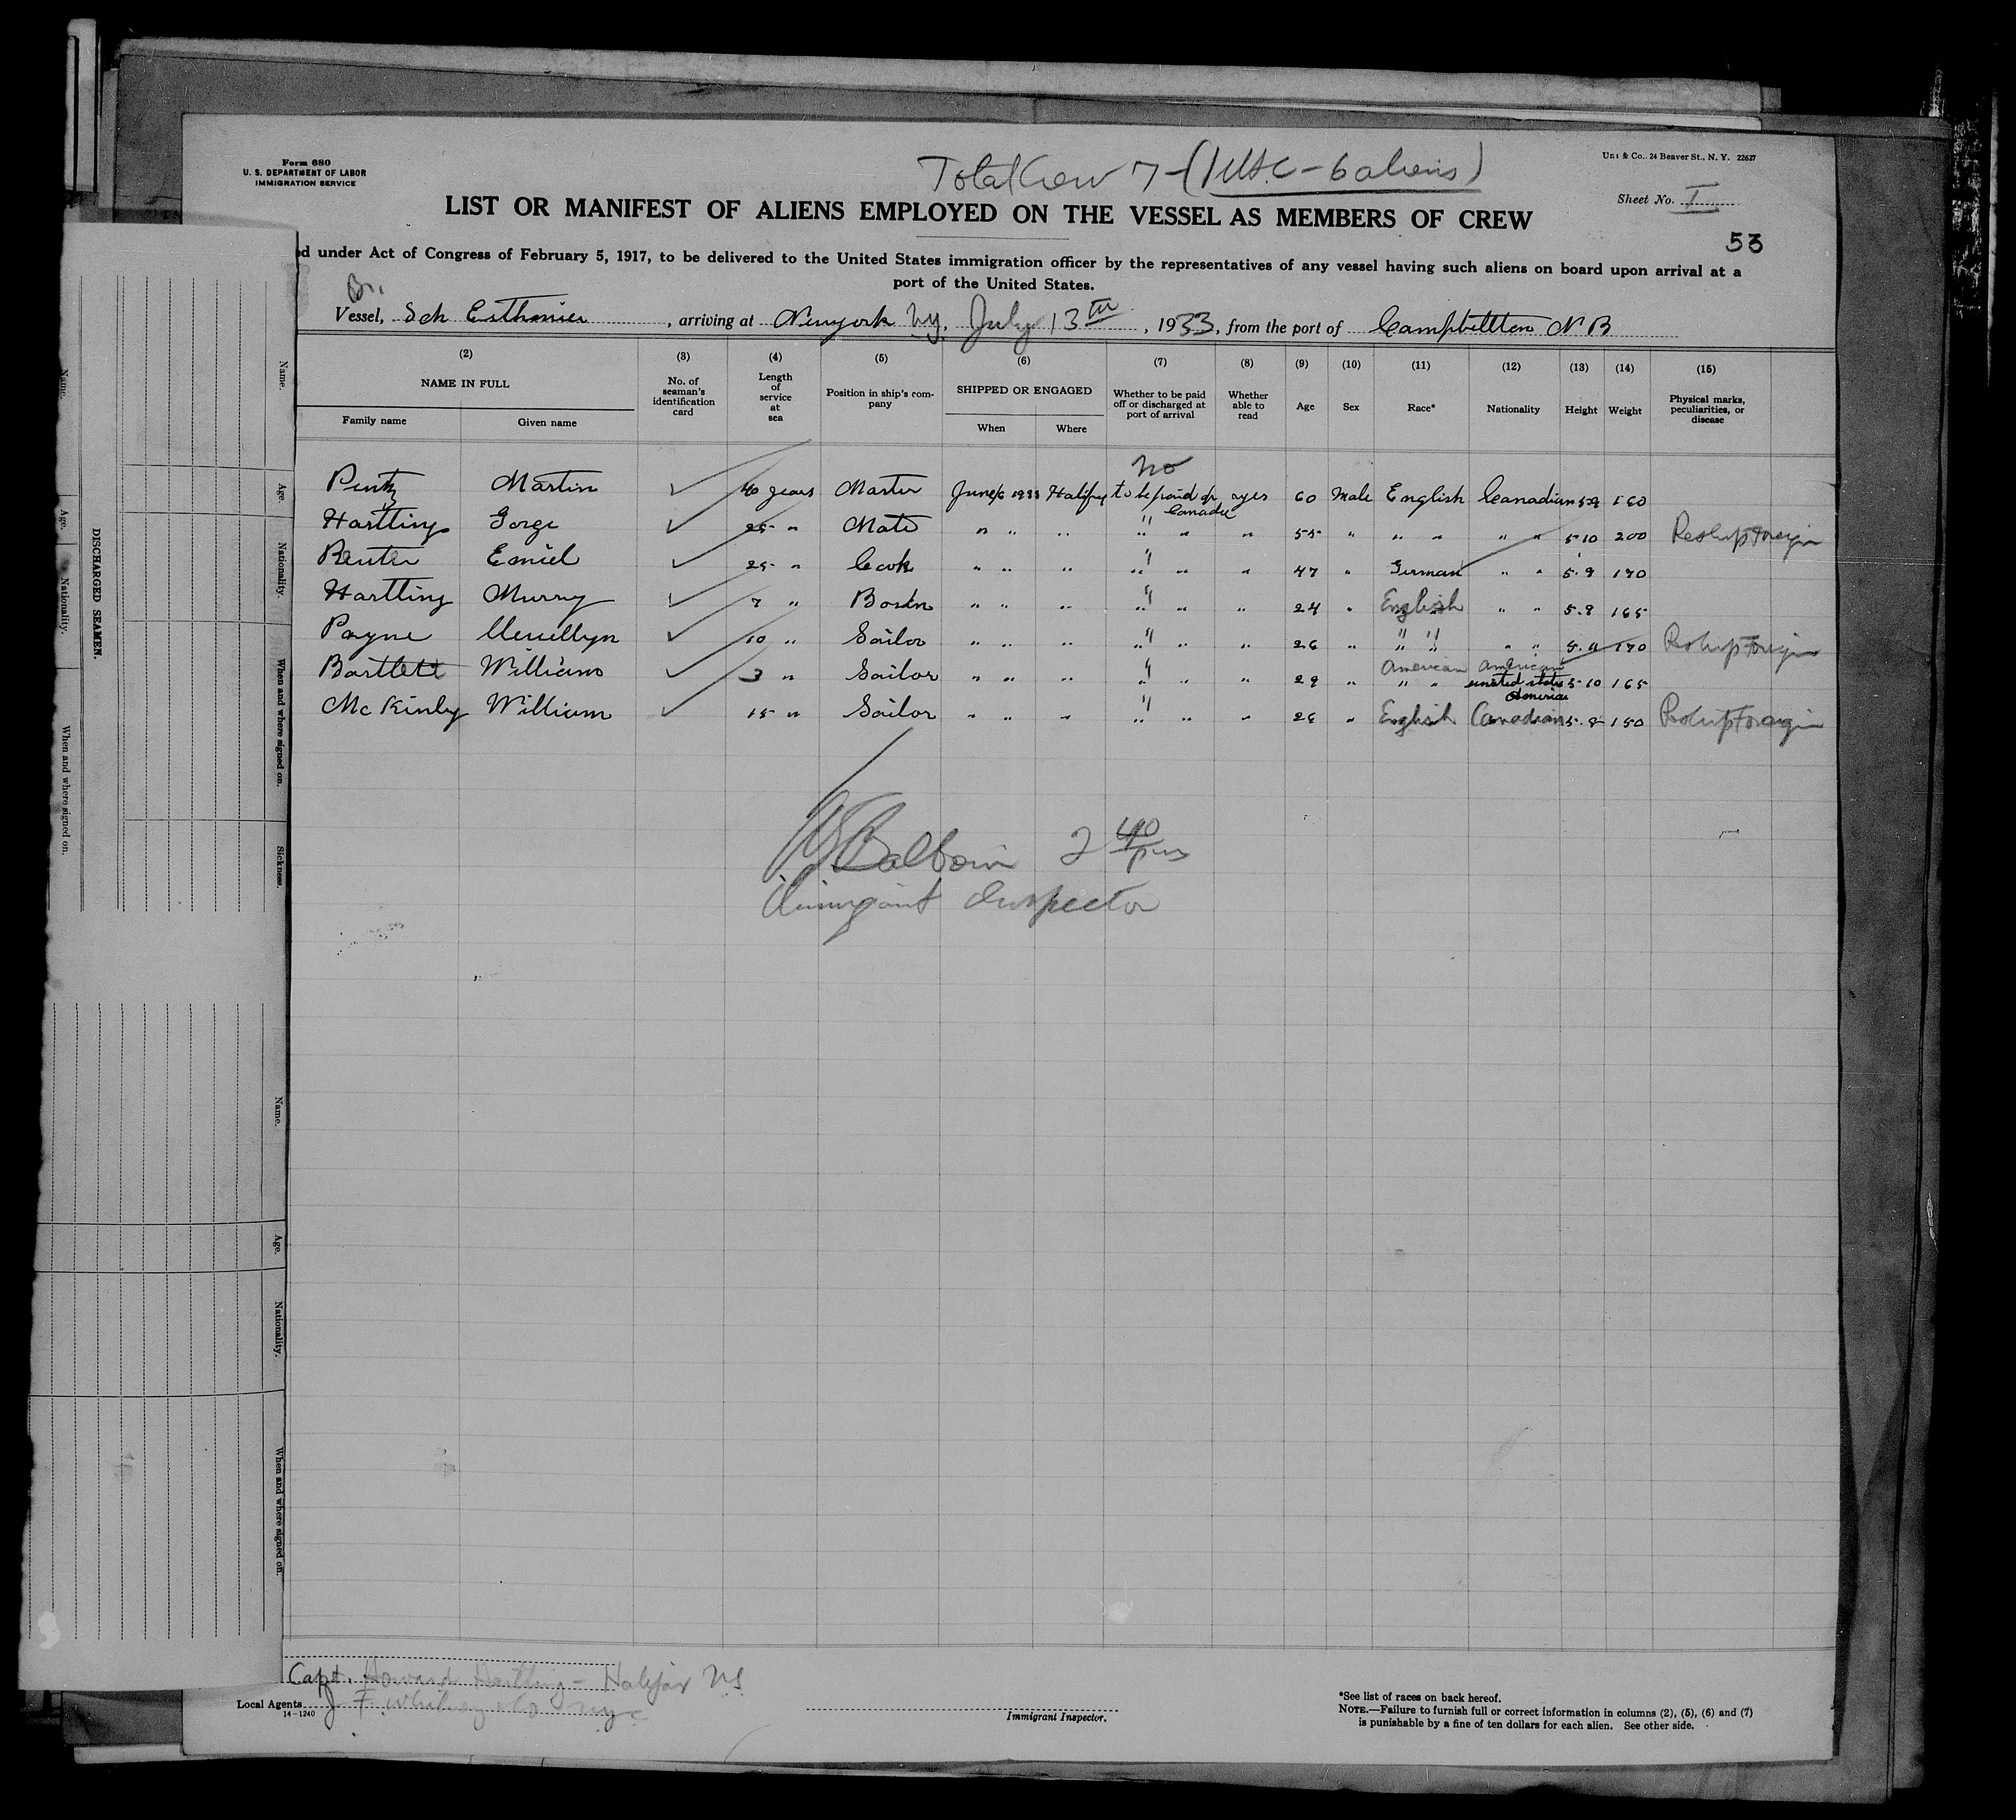 Form 680
U. S. DEPARTMENT OF LABOR
IMMIGRATION SERVICE
Total Crew 7 - (1 USC - 6 aliens)
& Co., 24 Beaver St., N. Y. 22627
Sheet No. I
LIST OR MANIFEST OF ALIENS EMPLOYED ON THE VESSEL AS MEMBERS OF CREW
53
under Act of Congress of February 5, 1917, to be delivered to the United States immigration officer by the representatives of any vessel having such aliens on board upon arrival at a
port of the United States.
Br.
Vessel, Sch , arriving at Newyork Ny, July 13th, 1933, from the port of Campbellton N B
(2) (3) (4) (5) (6) (7) (8) (9) (10) (11) (12) (13) (14) (15)
NAME IN FULL No. of seaman's identification card Length of service at sea Position in ship's company SHIPPED OR ENGAGED Whether to be paid off or discharged at port of arrival Whether able to read Age Sex Race* Nationality Height Weight Physical marks, peculiarities, or disease
Family name Given name When Where
no
Pentz Martin ✓ 40 years Master June 6 1933 Halifax to be paid of yes 60 Male English Canadian 5-9 160
Canada
Hartling Gorge ✓ 25 " Mate " " " " " " 55 " " " " " 5-10 200 Reship Foreign
Reuter Emiel ✓ 25 " Cook " " " " " " 47 " German " " 5-9 170
Hartling Murry ✓ 7 " Bosten " " " " " " 24 " English " " 5-9 165
Payne Llewellyn ✓ 10 " Sailor " " " " " " 26 " " " " " 5-11 170 Reship Foreign
Bartlett William ✓ 3 " Sailor " " " " " " 29 " American American
" " united states 5-10 165
America
McKinly William ✓ 15 " Sailor " " " " " " 26 " English Canadian 5-8 150 Reship Foreign
Baldwin 2 40 pm
Immigrant Inspector
DISCHARGED SEAMEN.
Name.
Age.
Nationality.
When and where signed on.
Name.
Age.
Nationality.
When and where signed on.
Sickness.
Name.
Age.
Nationality.
When and where signed on.
Capt. Howard Hartling - Halifax NS
Local Agents J F Whitney & Co NYC
14-1240
Immigrant Inspector.
*See list of races on back hereof.
NOTE.—Failure to furnish full or correct information in columns (2), (5), (6) and (7)
is punishable by a fine of ten dollars for each alien. See other side.